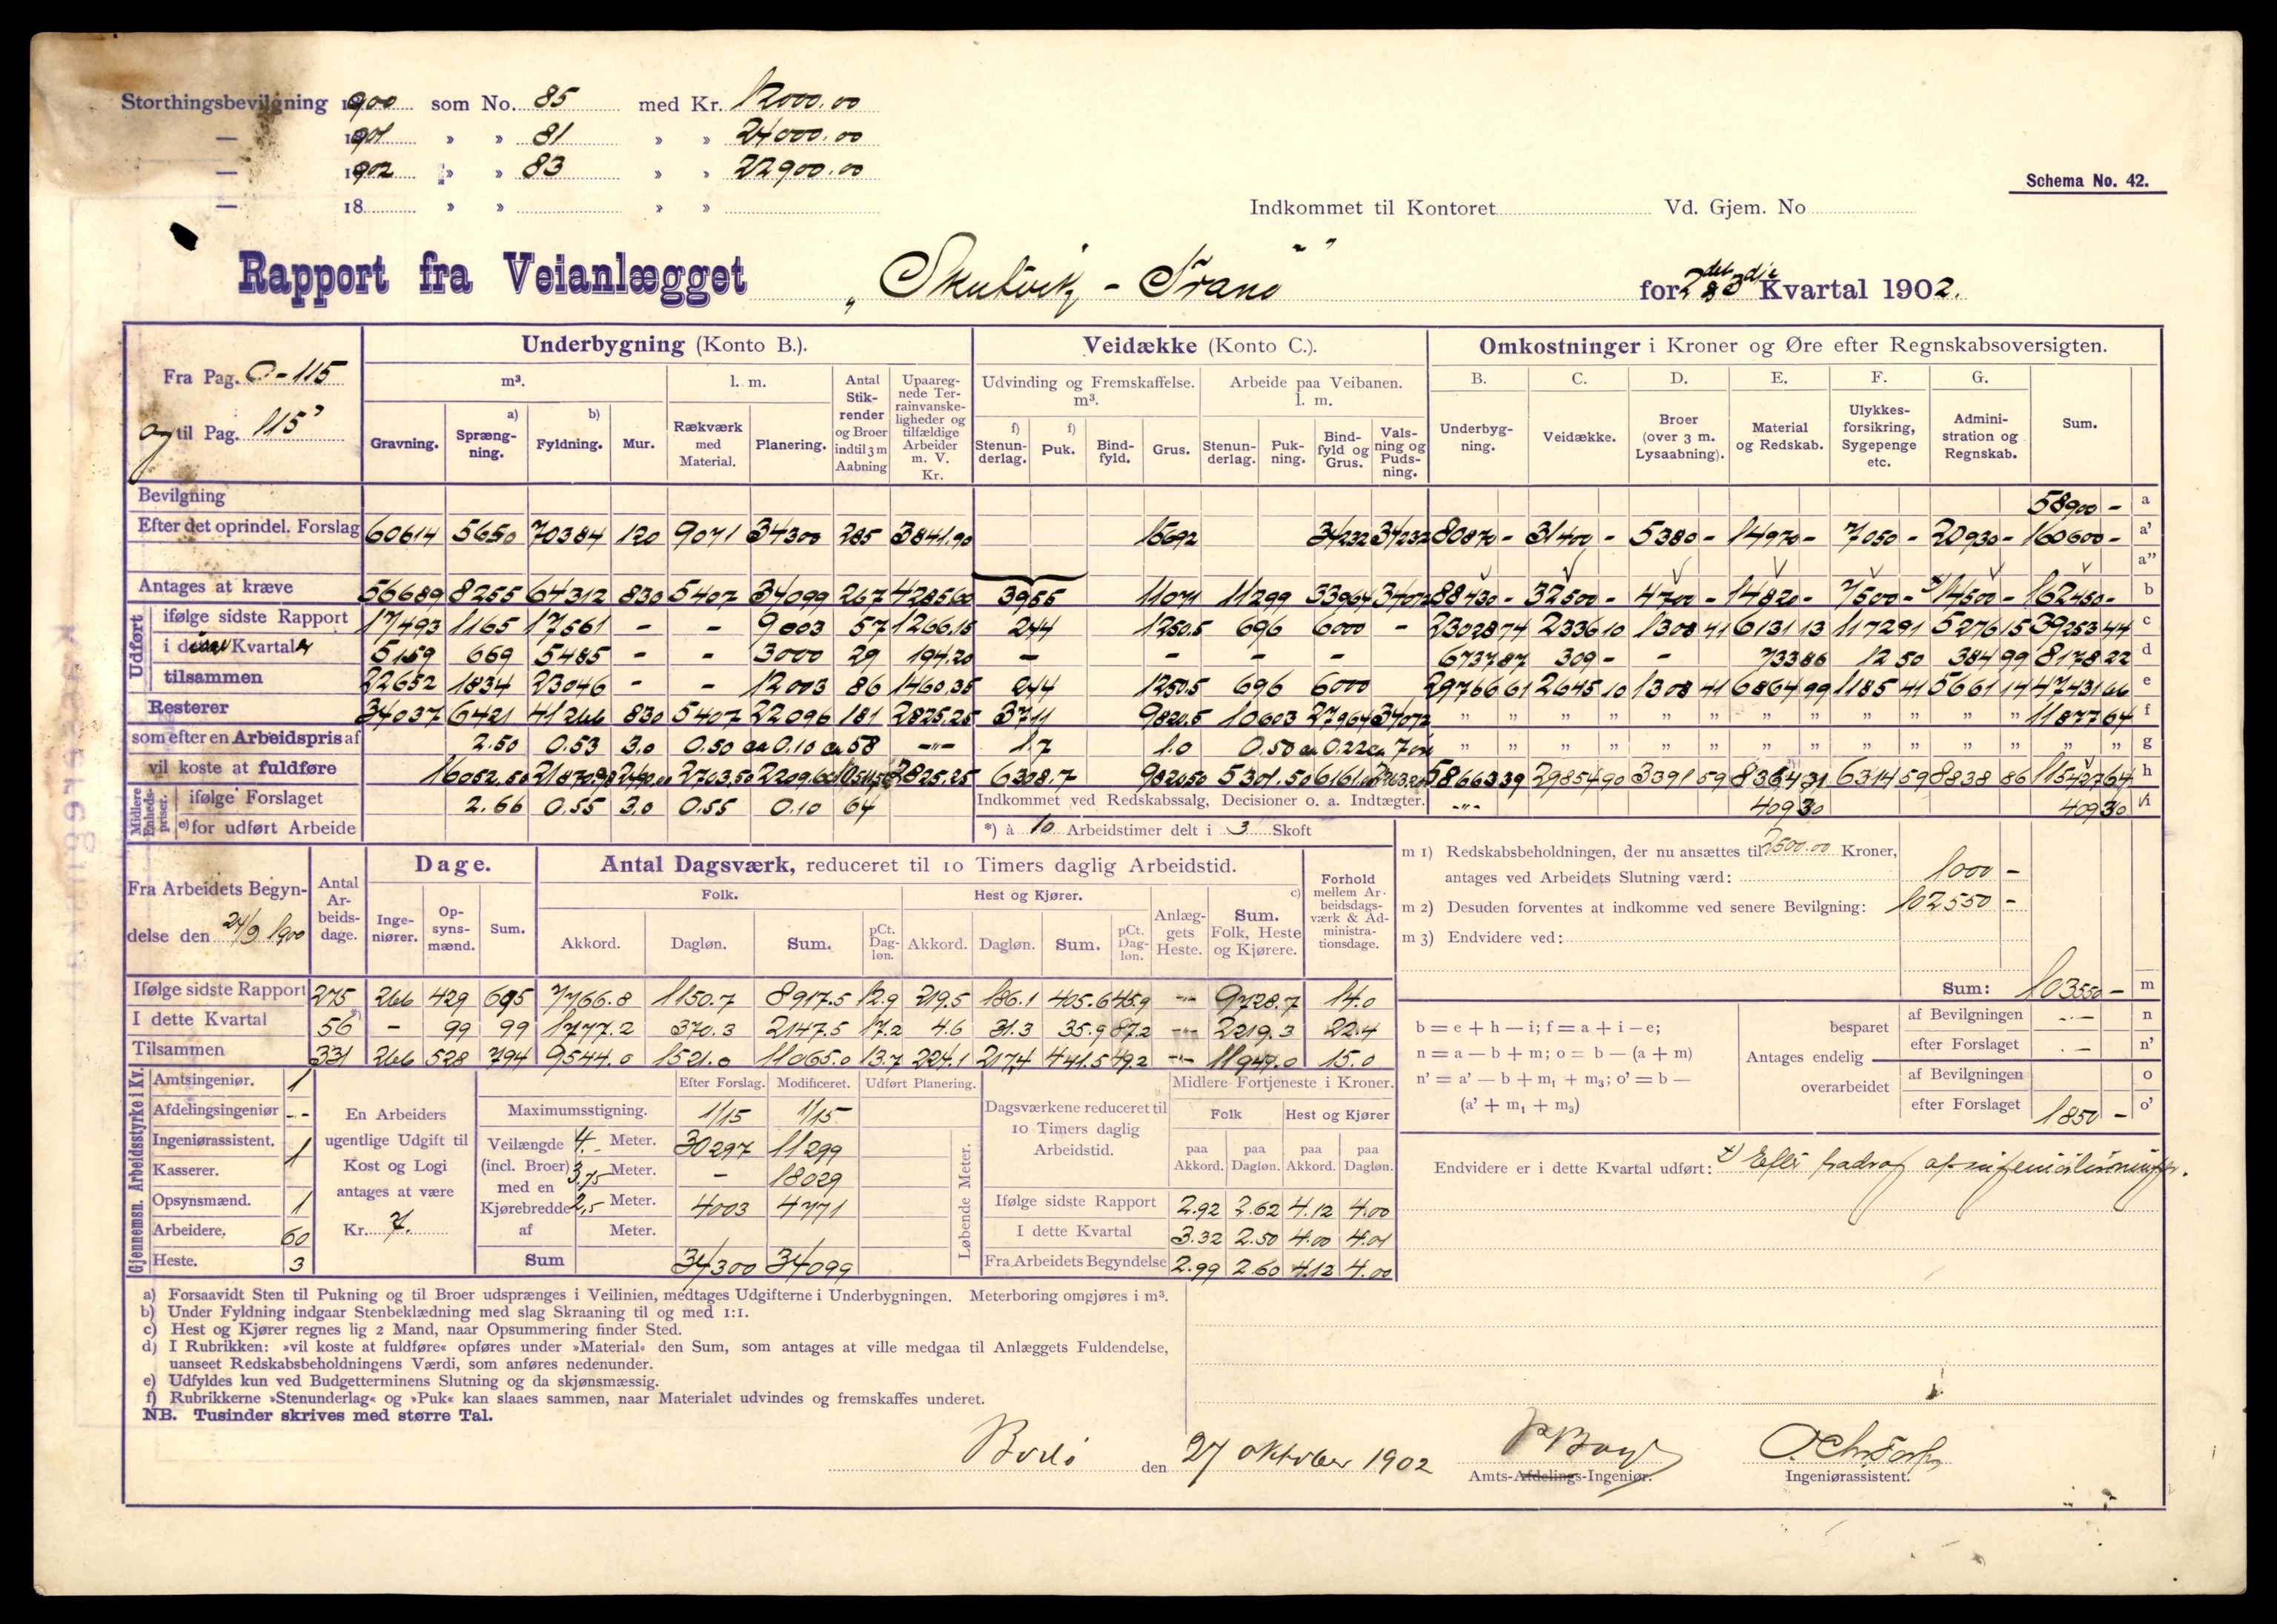 Storthingsbevilgning 1900 som No. 85 med Kr. 12000.00
— 1901 » » 81 » » 24000.00
— 1902 » » 83 » » 22900.00
— 18 » » » »
Schema No. 42.
Indkommet til Kontoret Vd. Gjem. No
Rapport fra Veianlægget „Skutvik - Tranö" for 2det & 3die Kvartal 1902.
Fra Pag. 0-115
og til Pag. 115
Underbygning (Konto B.). Veidække (Konto C.). Omkostninger i Kroner og Øre efter Regnskabsoversigten.
m³. l. m. Antal Stikrender og Broer indtil 3 m Aabning Upaaregnede Terrainvanskeligheder og tilfældige Arbeider m. V. Kr. Udvinding og Fremskaffelse. m³. Arbeide paa Veibanen. l. m. B. C. D. E. F. G.
Gravning. a) Sprængning. b) Fyldning. Mur. Rækværk med Material. Planering. f) Stenunderlag. f) Puk. Bindfyld. Grus. Stenunderlag. Pukning. Bindfyld og Grus. Valsning og Pudsning. Underbygning. Veidække. Broer (over 3 m. Lysaabning). Material og Redskab. Ulykkesforsikring, Sygepenge etc. Administration og Regnskab. Sum.
Bevilgning 58900 - a
Efter det oprindel. Forslag 60614 5650 70384 120 9071 34300 285 3841.90 15692 34232 34232 80870 - 31400 - 5380 - 14970 - 7050 - 20930 - 160600 - a'
a"
Antages at kræve 56689 8255 64312 830 5407 34099 267 4285.60 3955 11071 11299 33964 34072 88430 - 32500 - 4700 - 14820 - 7500 - 14500 - 162450 - b
Udført
ifølge sidste Rapport 17493 1165 17561 - - 9003 57 1266.15 244 1250.5 696 6000 - 23028 74 2336 10 1308 41 6131 13 1172 91 5276 15 39253 44 c
i disse Kvartaler 5159 669 5485 - - 3000 29 194.20 - - - - 6737 87 309 - - 733 86 12 50 384 99 8178 22 d
tilsammen 22652 1834 23046 - - 12003 86 1460.35 244 1250.5 696 6000 29766 61 2645 10 1308 41 6864 99 1185 41 5661 14 47431 66 e
Resterer 34037 6421 41266 830 5407 22096 181 2825.25 3711 9820.5 10603 27964 34072 " " " " " " " " " " " " 11877 64 f
som efter en Arbeidspris af 2.50 0.53 3.0 0.50 ca 0.10 ca 58 -"- 1.7 1.0 0.50 ca 0.22 ca 7 " " " " " " " " " " " " " " g
vil koste at fuldføre 16052.50 21870.98 2490.00 2703.50 2209.60 2825.25 6308.7 9820.50 5301.50 58663 39 29854 90 3391 59 8364 31 6314 59 8838 86 115427 64 h
Midlere Enhedspriser.
ifølge Forslaget 2.66 0.55 3.0 0.55 0.10 64 Indkommet ved Redskabssalg, Decisioner o. a. Indtægter. -"- 409 30 409 30 i
e) for udført Arbeide
*) à 10 Arbeidstimer delt i 3 Skoft
Fra Arbeidets Begyndelse den 24/9 1900
Antal Arbeidsdage. Dage. Antal Dagsværk, reduceret til 10 Timers daglig Arbeidstid. Forhold mellem Arbeidsdagsværk & Administrationsdage.
Ingeniører. Opsynsmænd. Sum. Folk. Hest og Kjører. Anlæggets Heste. c) Sum. Folk, Heste og Kjørere.
Akkord. Dagløn. Sum. pCt. Dagløn. Akkord. Dagløn. Sum. pCt. Dagløn.
Ifølge sidste Rapport 275 266 429 695 7766.8 1150.7 8917.5 12.9 219.5 186.1 405.6 45.9 -"- 9728.7 14.0
I dette Kvartal 56 - 99 99 1777.2 370.3 2147.5 17.2 4.6 31.3 35.9 87.2 -"- 2219.3 22.4
Tilsammen 331 266 528 794 9544.0 1521.0 11065.0 13.7 224.1 217.4 441.5 49.2 -"- 11947.0 15.0
m 1) Redskabsbeholdningen, der nu ansættes til 2500.00 Kroner,
antages ved Arbeidets Slutning værd: 1000 -
m 2) Desuden forventes at indkomme ved senere Bevilgning: 102550 -
m 3) Endvidere ved:
Sum: 103550 - m
b = e + h — i; f = a + i — e;
n = a — b + m; o = b — (a + m)
n' = a' — b + m₁ + m₃; o' = b —
(a' + m₁ + m₃)
Antages endelig
besparet af Bevilgningen -"- n
efter Forslaget - n'
overarbeidet af Bevilgningen o
efter Forslaget 1850 - o'
Gjennemsn. Arbeidsstyrke i Kv.
Amtsingeniør. 1
Afdelingsingeniør -"-
Ingeniørassistent. 1
Kasserer.
Opsynsmænd. 1
Arbeidere. 60
Heste. 3
En Arbeiders
ugentlige Udgift til
Kost og Logi
antages at være
Kr. 7.
Efter Forslag. Modificeret. Udført Planering.
Maximumsstigning. 1/15 1/15
Veilængde (incl. Broer) med en Kjørebredde af
4.- Meter. 30297 11299
3.75 Meter. - 18029
2,5 Meter. 4003 4771
Meter.
Sum 34300 34099
Løbende Meter.
Dagsværkene reduceret til 10 Timers daglig Arbeidstid.
Midlere Fortjeneste i Kroner.
Folk Hest og Kjører
paa Akkord. paa Dagløn. paa Akkord. paa Dagløn.
Ifølge sidste Rapport 2.92 2.62 4.12 4.00
I dette Kvartal 3.32 2.50 4.00 4.01
Fra Arbeidets Begyndelse 2.99 2.60 4.12 4.00
Endvidere er i dette Kvartal udført: Efter fradrag af
a) Forsaavidt Sten til Pukning og til Broer udsprænges i Veilinien, medtages Udgifterne i Underbygningen. Meterboring omgjøres i m³.
b) Under Fyldning indgaar Stenbeklædning med slag Skraaning til og med 1:1.
c) Hest og Kjører regnes lig 2 Mand, naar Opsummering finder Sted.
d) I Rubrikken: »vil koste at fuldføre« opføres under »Material« den Sum, som antages at ville medgaa til Anlæggets Fuldendelse,
uanseet Redskabsbeholdningens Værdi, som anføres nedenunder.
e) Udfyldes kun ved Budgetterminens Slutning og da skjønsmæssig.
f) Rubrikkerne »Stenunderlag« og »Puk« kan slaaes sammen, naar Materialet udvindes og fremskaffes underet.
NB. Tusinder skrives med større Tal.
Bodö den 27 oktober 1902
Amts-Afdelings-Ingeniør. Ingeniørassistent.